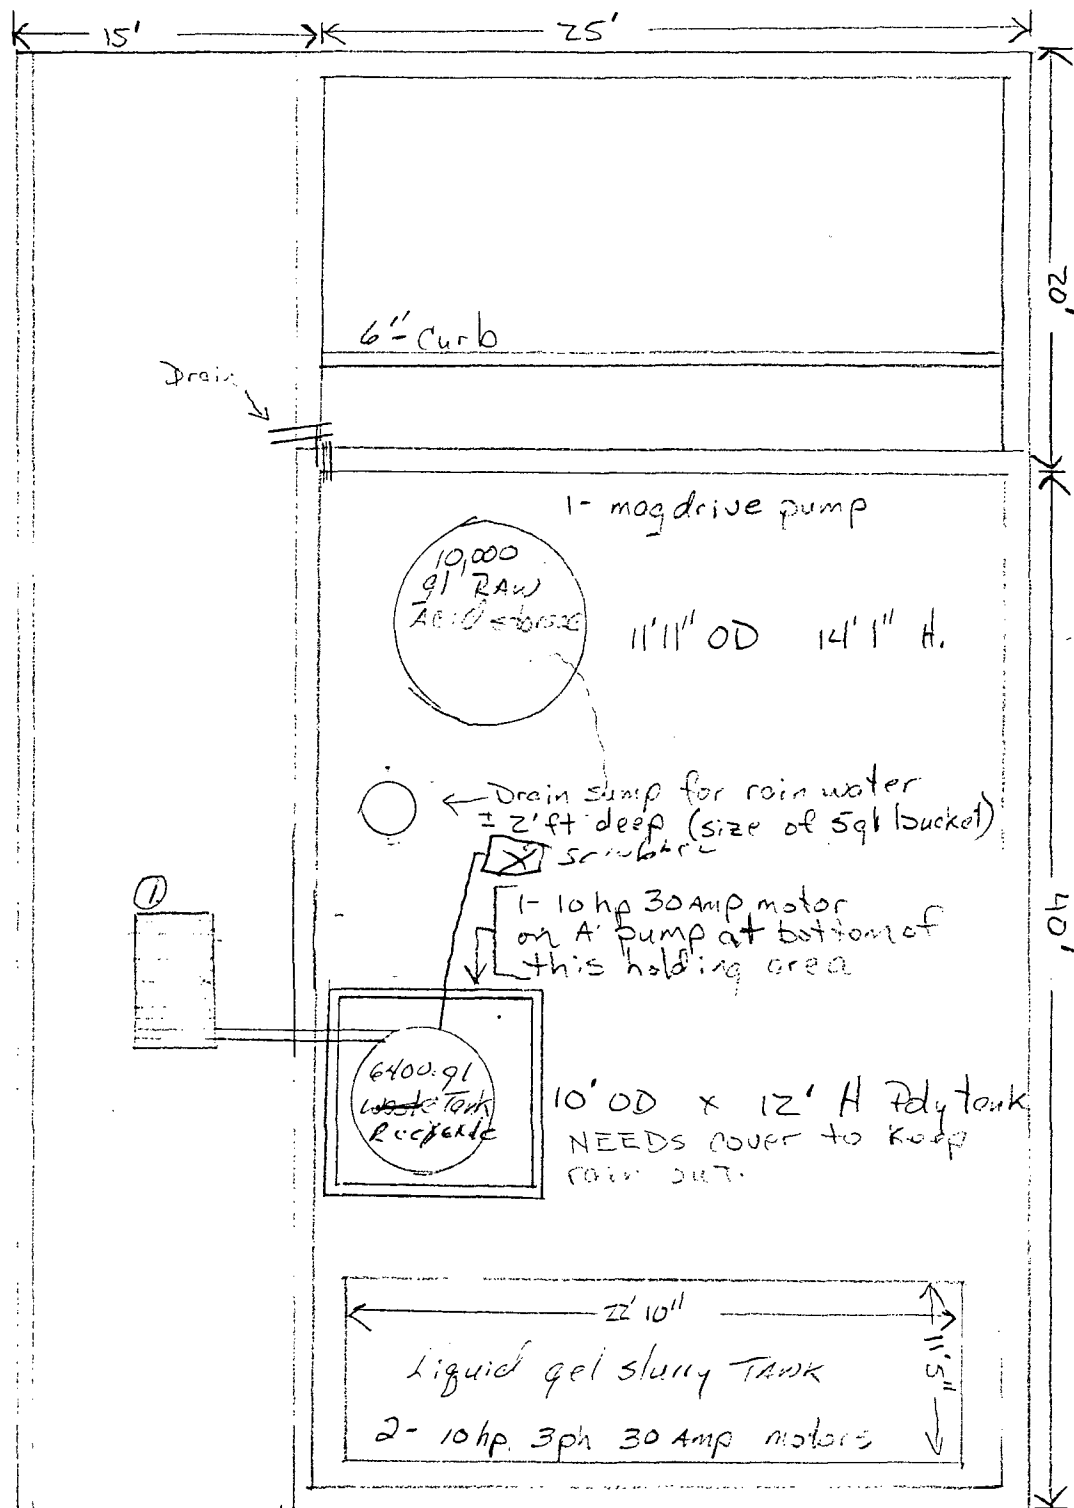 15'
25'
20'
6" Curb
Drain
1- mag drive pump
10,000
gl RAW
Acid storage
11'11" OD 14'1" H.
Drain sump for rain water
± 2' ft deep (size of 5gl bucket)
X scrubber
1
1- 10 hp 30 Amp motor
on A pump at bottom of
this holding area
40'
6400 gl
waste Tank
10' OD x 12' H Poly tank
NEEDs cover to keep
rain out.
22' 10"
11'5"
Liquid gel slurry TANK
2- 10 hp. 3ph 30 Amp motors